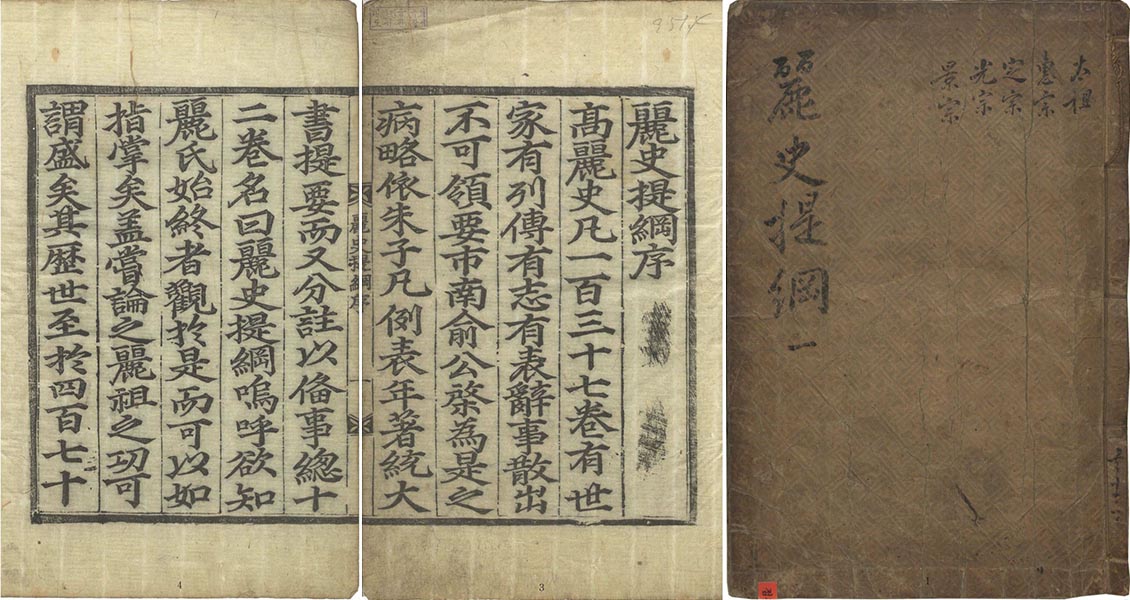 太祖
惠宗
定宗
光宗
景宗
麗史提綱一
1
麗史提綱序
高麗史凡一百三十七卷有世
家有列傳有志有表辭事散出
不可領要市南俞公棨為是之
病略依朱子凡例表年著統大
3
麗史提綱序
書提要而又分註以俻事總十
二卷名曰麗史提綱嗚呼欲知
麗氏始終者觀於是而可以如
指掌矣盖嘗論之麗祖之功可
謂盛矣其歷世至於四百七十
4